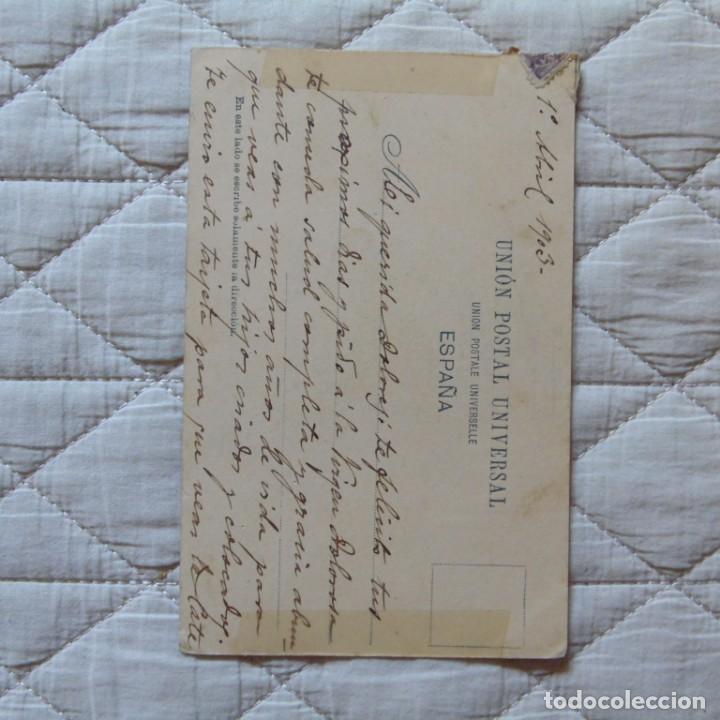 1.º Abril 1903-
UNIÓN POSTAL UNIVERSAL
UNION POSTALE UNIVERSELLE
ESPAÑA
Mi querida Dolores: te felicito tus
proximos dias y pido á la Virgen Dolorosa
te conceda salud completa y gracia abun
dante con muchos años de vida para
que veas á tus hijos criados y colocados.
En este lado se escribe solamente la dirección.
te envio esta tarjeta para que veas
todocoleccion.net